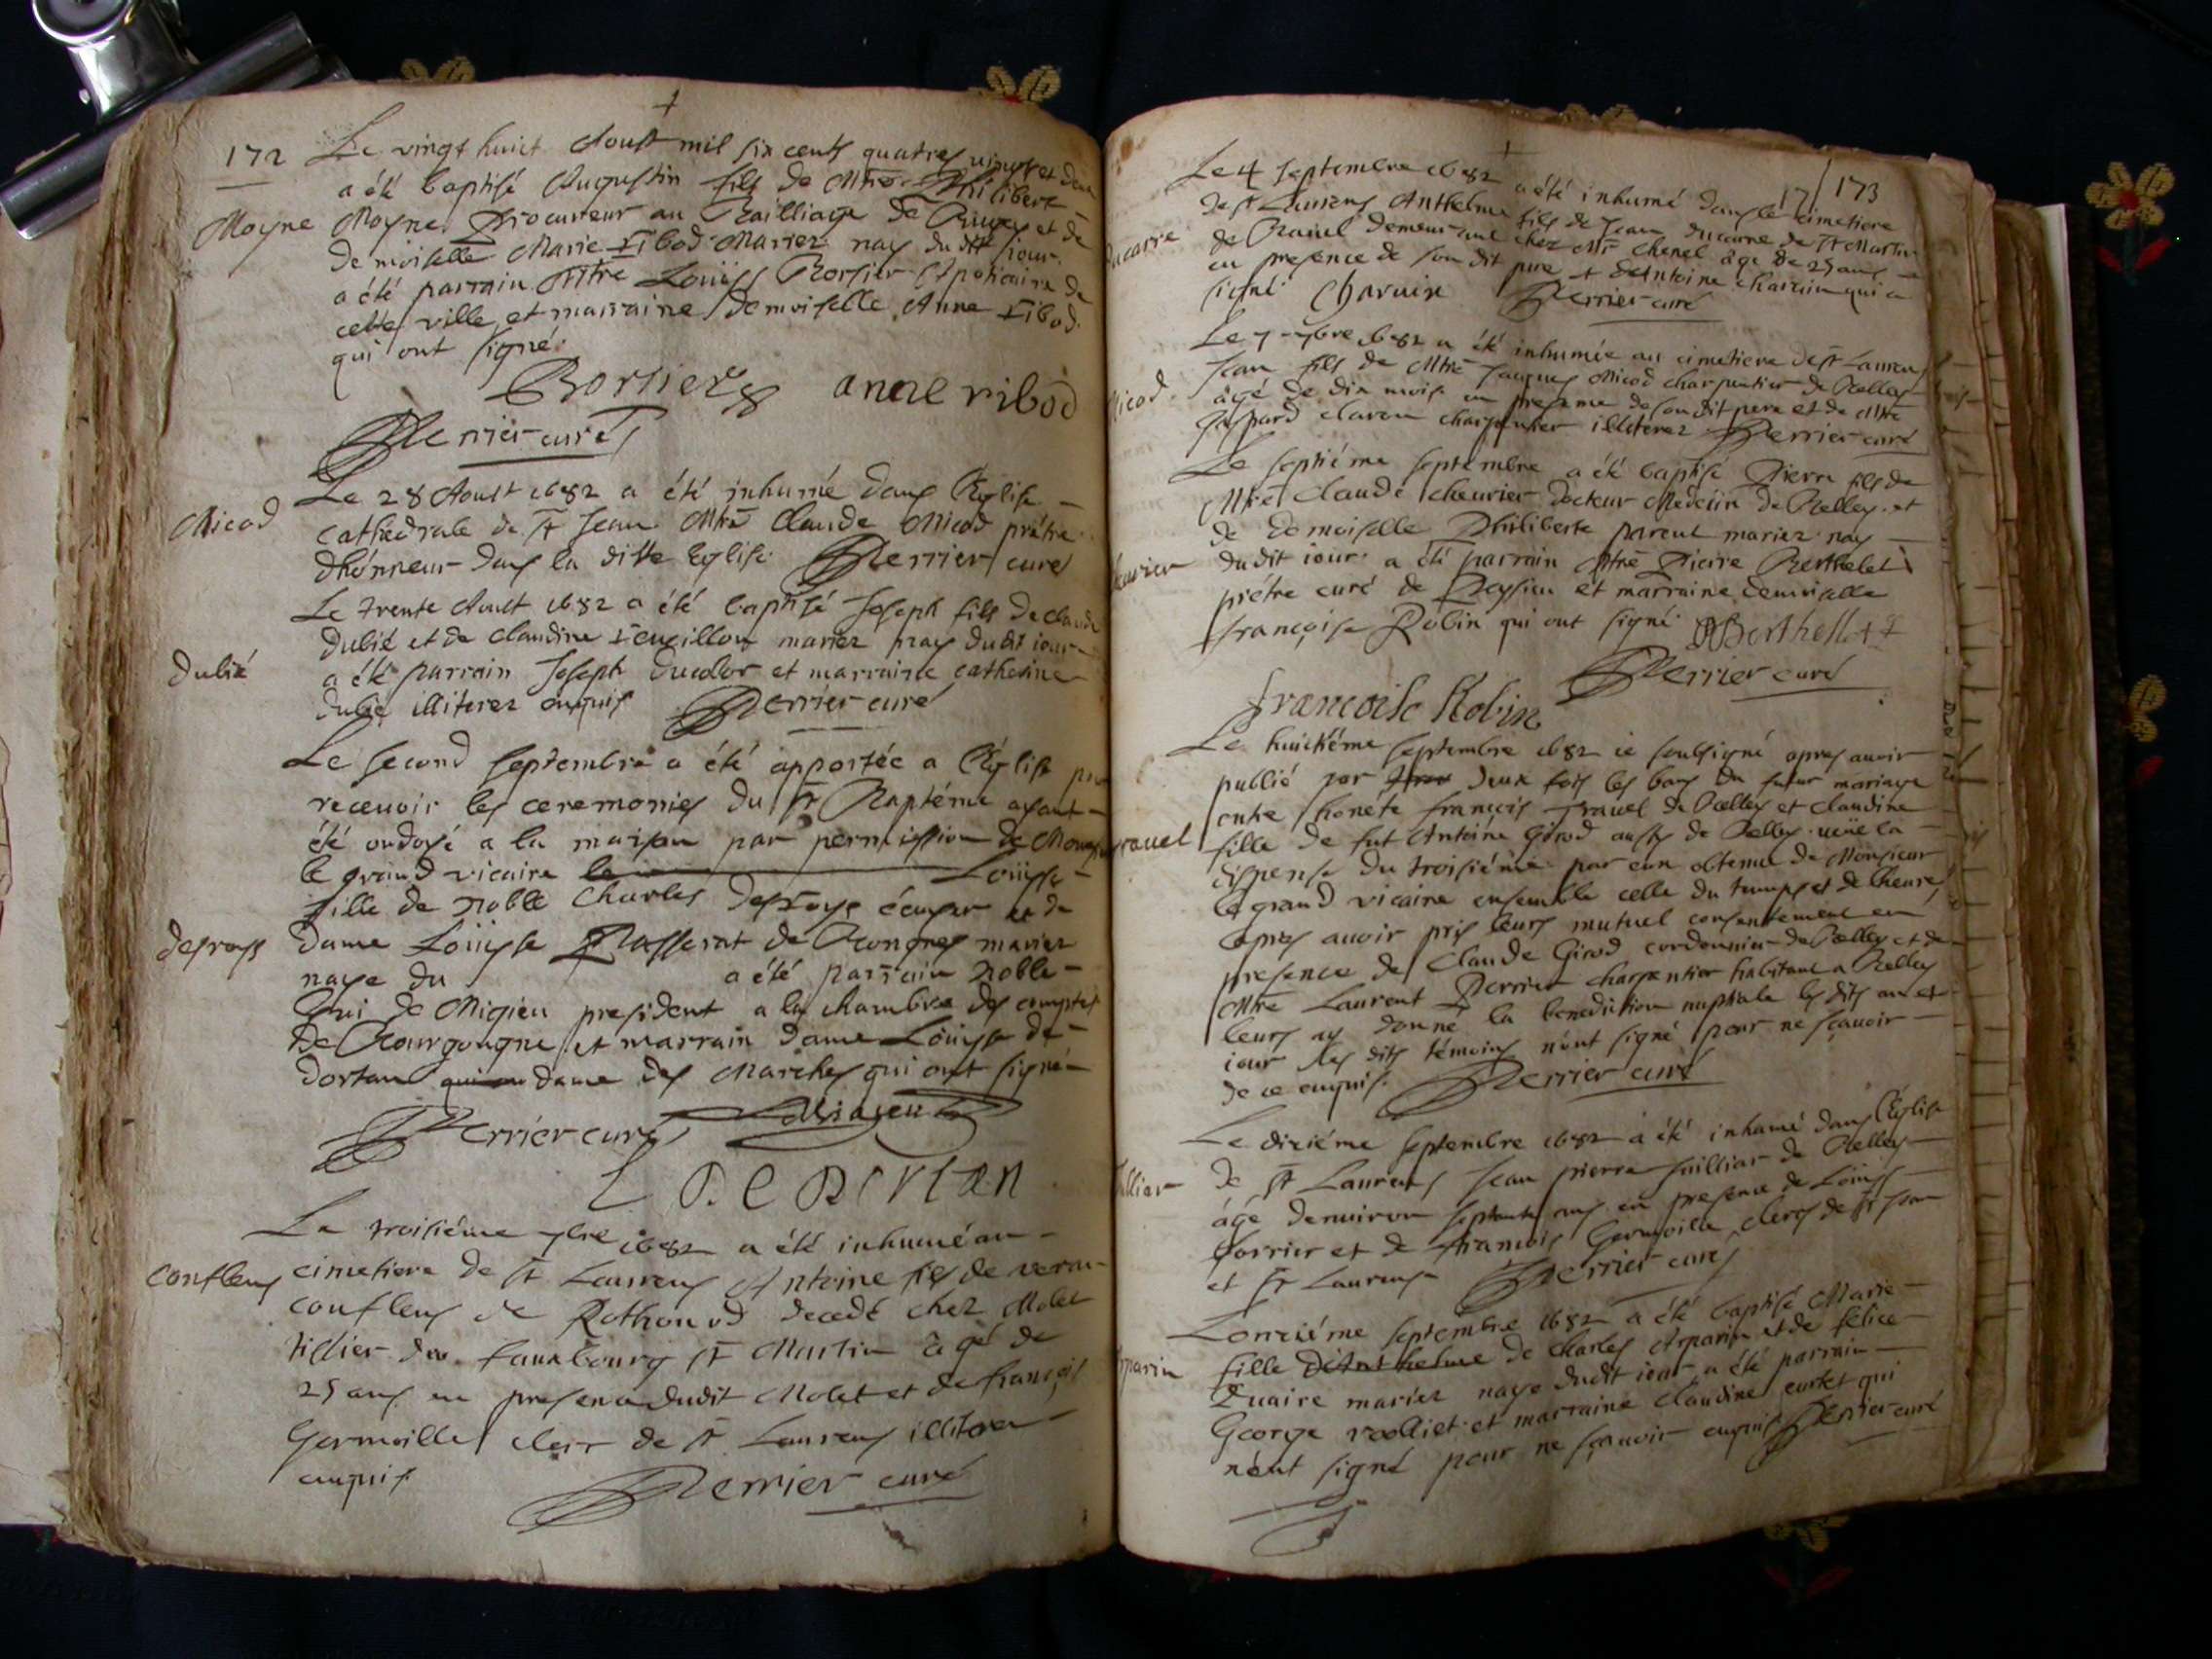 172
Le vingt huict Aoust mil six cents quatres vingts et deux
a été baptisé Augustin fils de Mtre Philibert
Moyne
Moyne Procureur au Bailliage de Bugey et de
demoiselle Marie Ribod mariez nay du dit jour
a été parrain Mtre Loüis Borsier Apoticaire de
cette ville et marraine demoiselle Anne Ribod
qui ont signé
Borsier anne ribod
Perrier curé
Nicod
Le 28 Aoust 1682 a été inhumé dans l'Eglise
cathedrale de St Jean Mtre Claude Nicod prétre
d'hónneur dans la ditte Eglise Perrier curé
Le trente Aoust 1682 a été baptisé Joseph fils de claude
Dubié et de claudine mariez nay dudit jour
dubié
a été parrain Joseph et marraine catherine
dubié illiterez enquis Perrier curé
Le second septembre a été apportée a l'Eglise pour
recevoir les ceremonies du St Baptéme ayant
été ondoyé a la maison par permission de
le grand vicaire Loüyse
fille de noble Charles Desroys écuyer et de
desroys
dame Loüyse Passerat de Rougnes mariez
naye du a été parrain noble
Gui de Migieu president a la chambre des comptes
de Bourgougne et marrain dame Loüyse de
dortan dame des Marches qui ont signé
Perrier curé Migieu
L De DORTAN
Le troisiéme 7bre 1682 a été inhumé au
conflens
cimetiere de St Laurens Antoine fils de
conflens de Rothonod decedé chez Molet
du fauxbourg St Martin âgé de
25 ans en presence dudit Molet et de françois
Germoille clerc de St Laurens illiterez
enquis
Perrier curé
17 173
Le 4 septembre 1682 a été inhumé dans le cimetiere
ducarre
de St Laurens Anthelme fils de Jean ducarre de St Martin
de Bavel demeurant chez Mr Chenel âgé de 25 ans
en presence de son dit pere et de Antoine charuin qui a
signé Charuin Perrier curé
Le 7 7bre 1682 a été inhumée au cimetiere de St Laurens
Nicod
Jean fils de Mtre Jacques Nicod charpentier de Belley
âgé de dix mois en presence de son dit pere et de Mtre
Gaspard clavon charpentier illiterez Perrier curé
Le septiéme septembre a été baptisé Pierre fils de
Mtre Claude cheurier docteur Medecin de Belley et
de Demoiselle Philiberte parent mariez nay
cheurier
dudit iour a été parrain Mtre Pierre Berthelet
prétre curé de Peysieu et marraine demoiselle
françoise Robin qui ont signé Berthellet
Perrier curé
francoise Robin
Le huictiéme septembre 1682 ie soussigné apres auoir
publié par deux fois les bans du futur mariage
entre honéte françois Travel de Belley et claudine
travel
fille de fut Antoine Girod aussy de Belley veüe la
dispense du troisiéme par eux obtenue de Monsieur
le grand vicaire ensemble celle du temps et de lheure
apres avoir pris leurs mutuel consentement en
presence de Claude Girod cordonnier de Belley et de
Mtre Laurent Perrier charpentier habitant a Belley
leurs ay donné la benediction nuptiale les dits an et
iour les dits témoins n'ont signé pour ne sçavoir
de ce enquis Perrier curé
Le dixiéme septembre 1682 a été inhumé dans l'Eglise
de St Laurens Jean pierre Juilliar de Belley
âgé denviron septante ans en presence de Loüys
borrier et de francois Germoille clercs de St Jean
et St Laurens Perrier curé
L'onziéme septembre 1682 a été baptisé Marie
fille d'Anthelme de Charles Arparin et de felice
arparin
mariez naye dudit iour a été parrain
George et marraine claudine curtet qui
n'ont signé pour ne sçavoir enquis Perrier curé